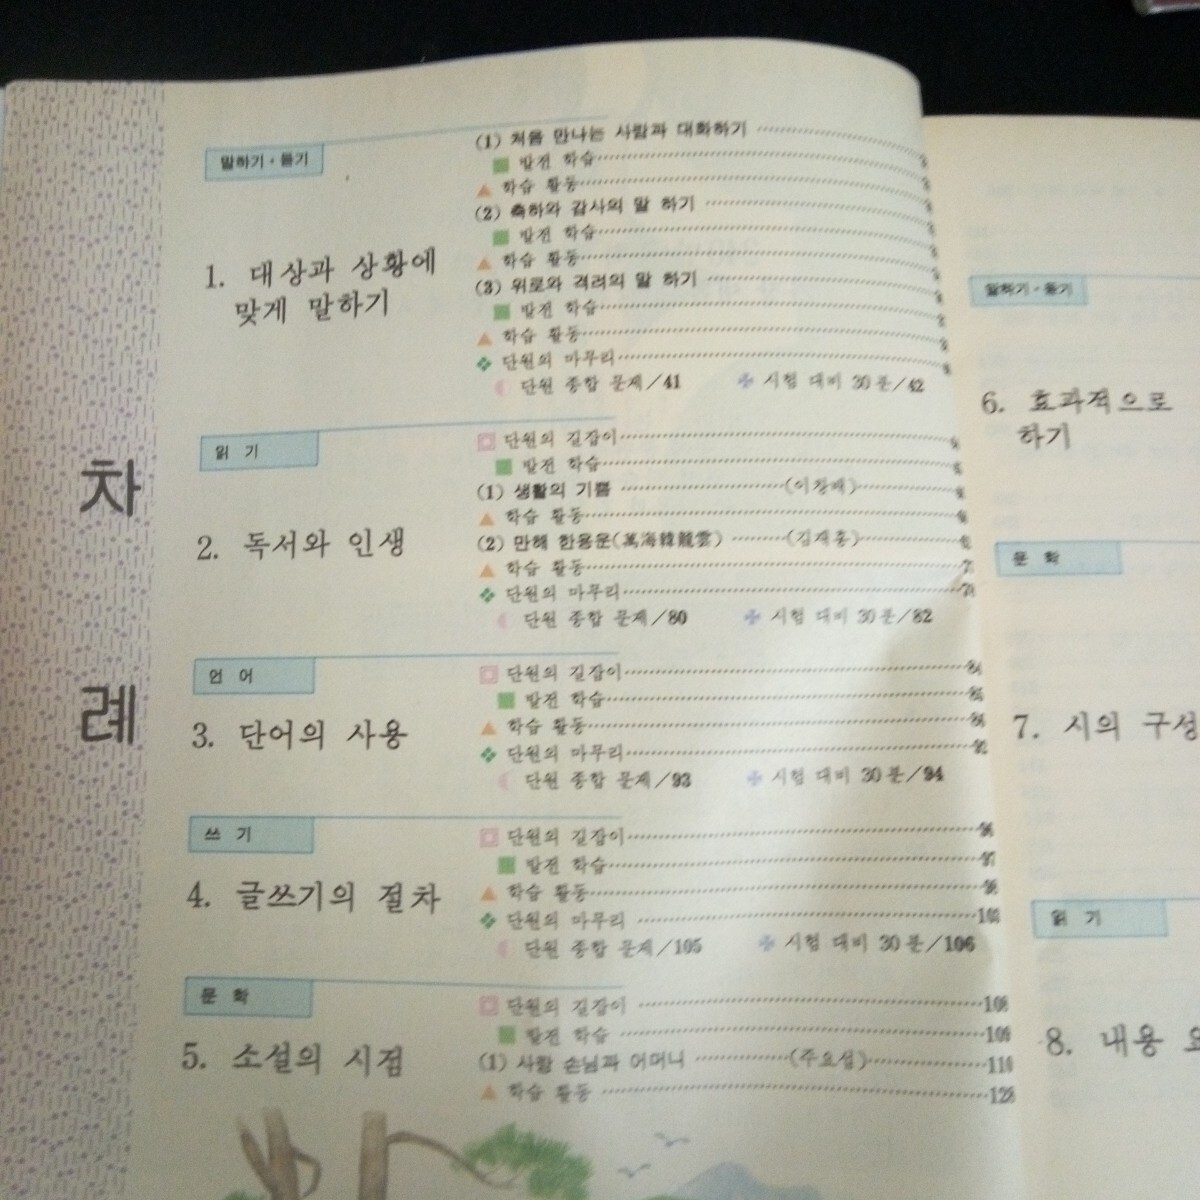 차
례
말하기·듣기
1. 대상과 상황에
맞게 말하기
(1) 처음 만나는 사람과 대화하기
발전 학습
학습 활동
(2) 축하와 감사의 말 하기
발전 학습
학습 활동
(3) 위로와 격려의 말 하기
발전 학습
학습 활동
단원의 마무리
단원 종합 문제/41 시험 대비 30분/42
읽 기
2. 독서와 인생
단원의 길잡이
발전 학습
(1) 생활의 기쁨 (이창배)
학습 활동
(2) 만해 한용운(萬海韓龍雲) (김재홍)
학습 활동
단원의 마무리
단원 종합 문제/80 시험 대비 30분/82
언 어
3. 단어의 사용
단원의 길잡이 84
발전 학습
학습 활동
단원의 마무리 92
단원 종합 문제/93 시험 대비 30분/94
쓰 기
4. 글쓰기의 절차
단원의 길잡이 96
발전 학습 97
학습 활동
단원의 마무리
단원 종합 문제/105 시험 대비 30분/106
문 학
5. 소설의 시점
단원의 길잡이 108
발전 학습 109
(1) 사랑 손님과 어머니 (주요섭) 110
학습 활동 128
말하기·듣기
6. 효과적으로
하기
문 학
7. 시의 구성
읽 기
8. 내용 요